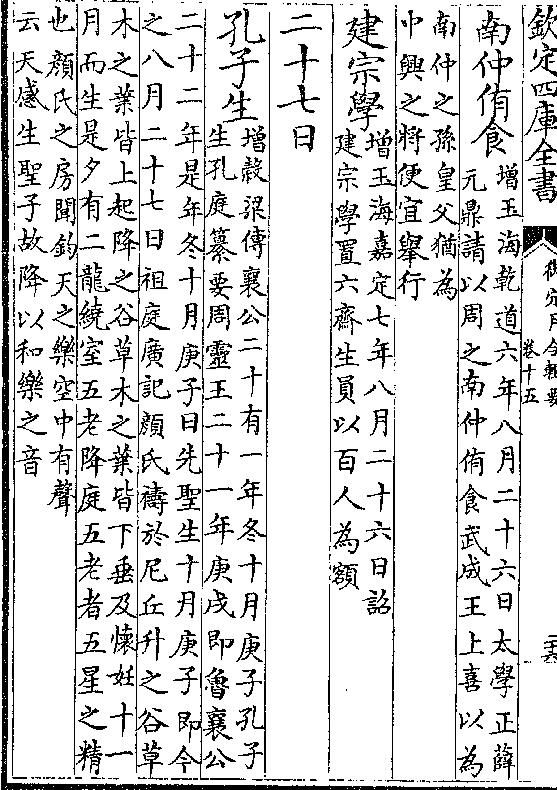 欽定四庫全書
御定月令輯要
卷十五
南仲侑食
增玉海乾道六年八月二十六日太學正薛
元鼎請以周之南仲侑食武成王上喜以為
南仲之孫皇父猶為
中興之將便宜舉行
建宗學
增玉海嘉定七年八月二十六日詔
建宗學置六齋生員以百人為額
二十七日
孔子生
增榖梁傳襄公二十有一年冬十月庚子孔子
生孔庭纂要周靈王二十一年庚戌即魯襄公
二十二年是年冬十月庚子日先聖生十月庚子即今
之八月二十七日祖庭廣記顔氏禱於尼丘升之谷草
木之葉皆上起降之谷草木之葉皆下垂及懷妊十一
月而生是夕有二龍繞室五老降庭五老者五星之精
也顔氏之房聞鈞天之樂空中有聲
云天感生聖子故降以和樂之音